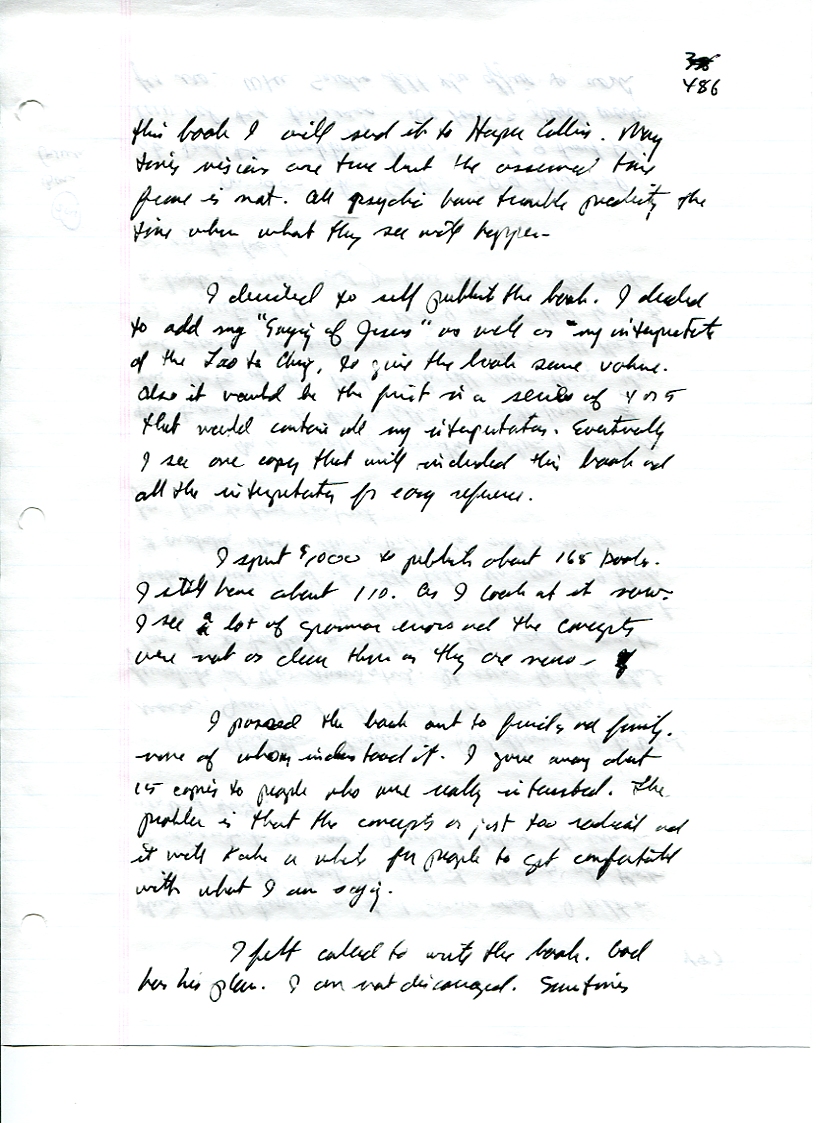 486
this book I will send it to Harper Collins. Many
times visions are true but the assumed time
frame is not. All psychic have trouble predicting the
time when what they see will happen-
I decided to self publish the book. I decided
to add my "Saying of Jesus" as well as "my interpretation
of the Tao te Ching, to give the book some volume.
Also it would be the first in a series of 4 or 5
that would contain all my interpretations. Eventually
I see one copy that will included this book and
all the interpretation for easy reference.
I spent $1,000 to publish about 165 books.
I still have about 110. As I look at it now.
I see a lot of grammar errors and the concepts
were not as clear then as they are now-
I passed the book out to friends and family.
none of whom understood it. I gave away about
15 copies to people who were really interested. The
problem is that the concepts are just too radical and
it will take a while for people to get comfortable
with what I am saying.
I felt called to write the book. God
has his plan. I am not discouraged. Sometimes